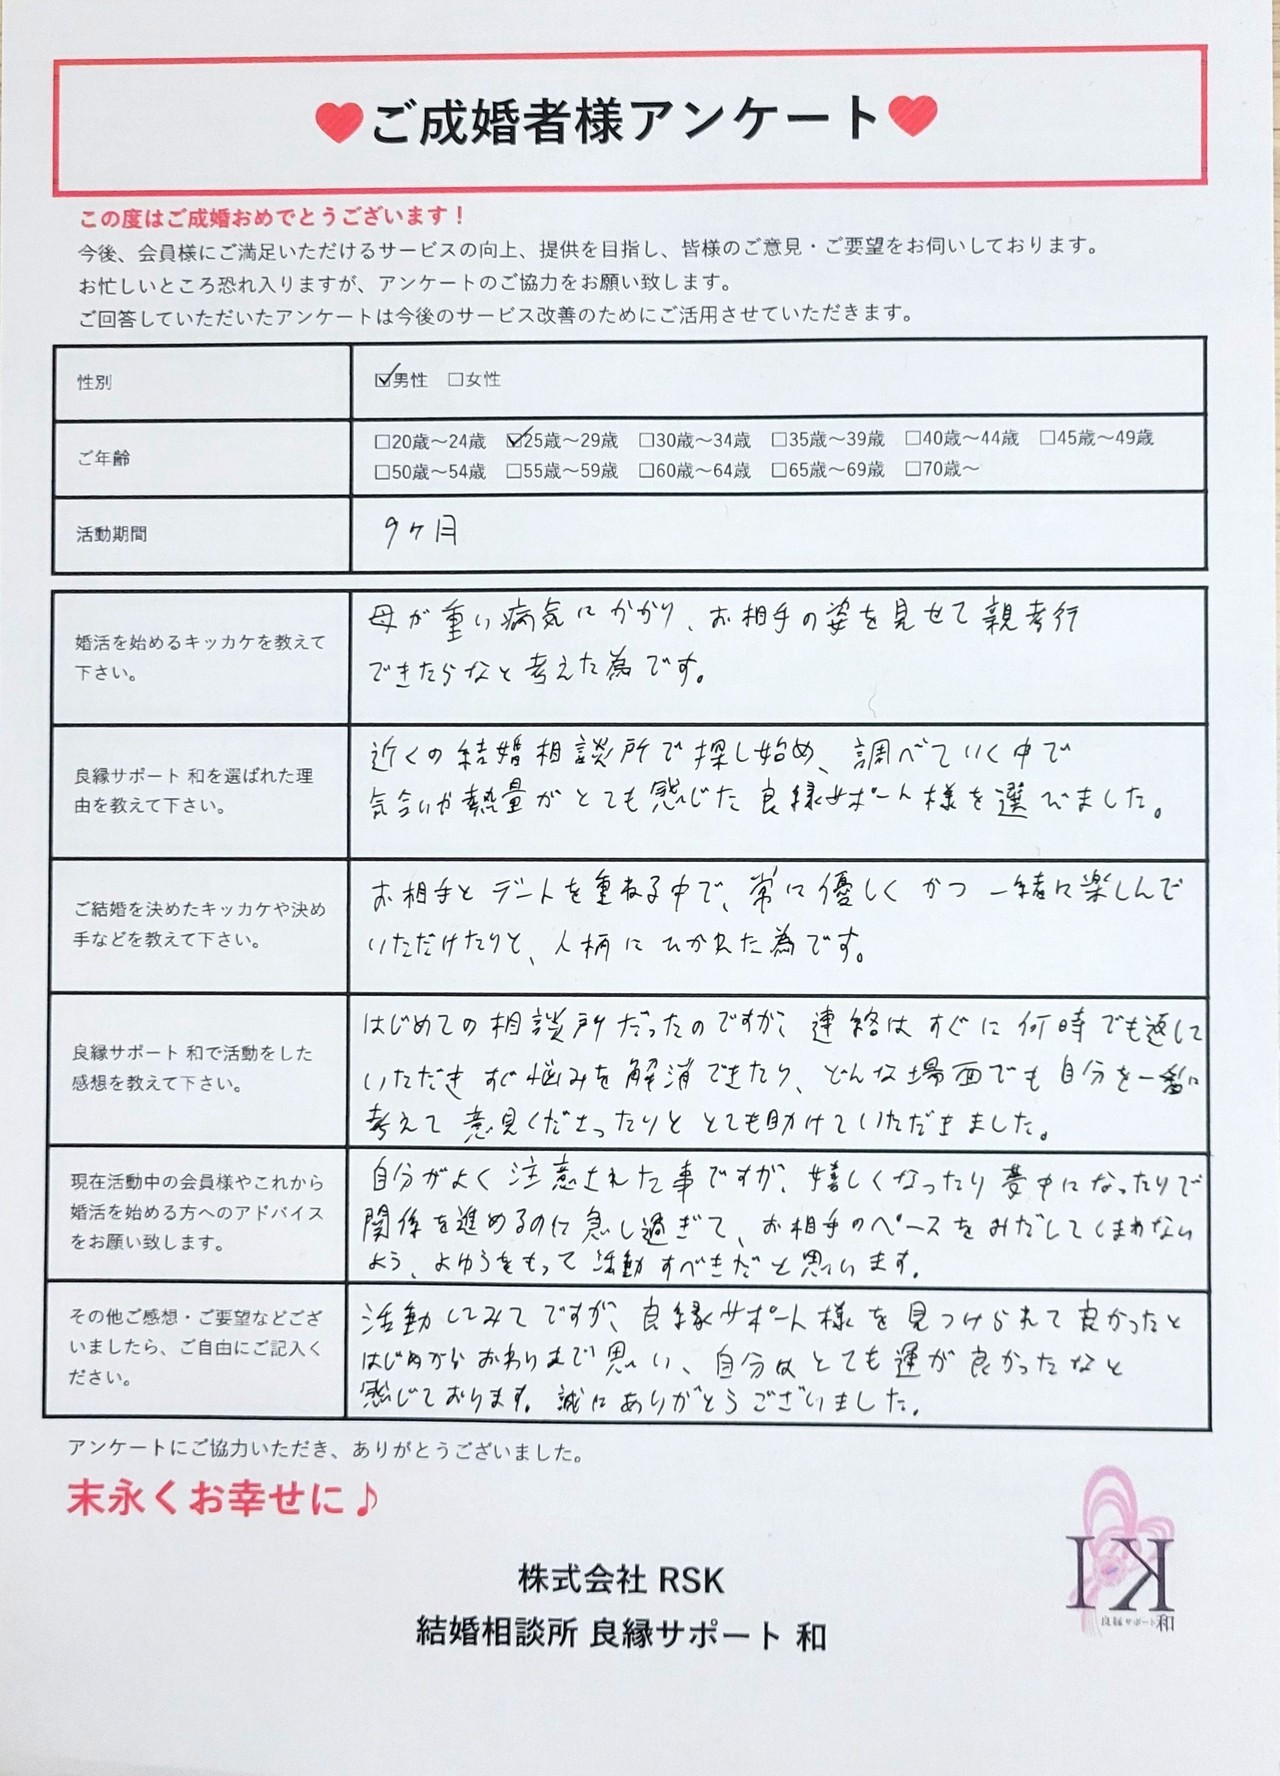 ご成婚者様アンケート
この度はご成婚おめでとうございます！
今後、会員様にご満足いただけるサービスの向上、提供を目指し、皆様のご意見・ご要望をお伺いしております。
お忙しいところ恐れ入りますが、アンケートのご協力をお願い致します。
ご回答していただいたアンケートは今後のサービス改善のためにご活用させていただきます。
性別
☑男性 □女性
ご年齢
□20歳～24歳 ☑25歳～29歳 □30歳～34歳 □35歳～39歳 □40歳～44歳 □45歳～49歳
□50歳～54歳 □55歳～59歳 □60歳～64歳 □65歳～69歳 □70歳～
活動期間
9ヶ月
婚活を始めるキッカケを教えて
下さい。
母が重い病気にかかり、お相手の姿を見せて親孝行
できたらなと考えた為です。
良縁サポート 和を選ばれた理
由を教えて下さい。
近くの結婚相談所で探し始め、調べていく中で
気合いや熱量がとても感じた良縁サポート様を選びました。
ご結婚を決めたキッカケや決め
手などを教えて下さい。
お相手とデートを重ねる中で、常に優しくかつ一緒に楽しんで
いただけたりと、人柄にひかれた為です。
良縁サポート 和で活動をした
感想を教えて下さい。
はじめての相談所だったのですが、連絡はすぐに何時でも返して
いただきすぐ悩みを解消できたり、どんな場面でも自分を一番に
考えて意見くださったりととても助けていただきました。
現在活動中の会員様やこれから
婚活を始める方へのアドバイス
をお願い致します。
自分がよく注意された事ですが、嬉しくなったり夢中になったりで
関係を進めるのに急し過ぎて、お相手のペースをみだしてしまわない
よう、よゆうをもって活動すべきだと思います。
その他ご感想・ご要望などござ
いましたら、ご自由にご記入く
ださい。
活動してみてですが、良縁サポート様を見つけられて良かったと
はじめからおわりまで思い、自分はとても運が良かったなと
感じております。誠にありがとうございました。
アンケートにご協力いただき、ありがとうございました。
末永くお幸せに♪
株式会社 RSK
結婚相談所 良縁サポート 和
良縁サポート和